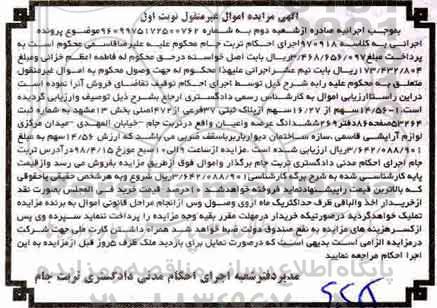 آگهی مزایده اموال غیرمنقول نوبت اول
بموجب اجرائیه صادره ازشعبه دوم به شماره ۹۶۰۹۹۷۵۱۷۲۵۰۰۷۶۲ موضوع پرونده
اجرائی به کلاسه ۹۷۰۹۱۸ اجرای احکام تربت جام محکوم علیه علیرضاقاسمی محکوم است به
پرداخت مبلغ ۳/۴۶۸/۶۵۶/۰۹۷ ریال بابت اصل خواسته درحق محکوم له فاطمه اعظم خزائی ومبلغ
۱۷۳/۴۳۲/۸۰۴ ریال بابت نیم عشراجرائی علیهذا محکوم له جهت وصول محکوم به اموال غیرمنقول
متعلق به محکوم علیه رابه شرح ذیل توسط اجرای احکام توقیف تقاضای فروش آنرا نموده است
دراین راستاارزیابی اموال به کارشناس رسمی دادگستری ارجاع بشرح ذیل توصیف وارزیابی گردیده
است ۱-۱۴/۵۶ سهم از ۱۶/۲۷ سهم ازپلاک ثبتی ۳۷ فرعی از ۴۷۲ اصلی بخش ۱۳ مشهد به شماره ثبت
۵۳۲۶۴ صفحه ۸۶ دفتر ۲۶۹ ششدانگ عرصه واعیان واقع درتربت جام -خیابان المهدی -میدان مرکزی
لوازم آرایشی قاسمی ،سازه ساختمان دیوارباربرباسقف ضربی می باشد که ارزش ۱۴/۵۶ سهم به مبلغ
۳/۶۴۲/۰۸۸/۹۰۱ ریال ارزیابی شده است .مزایده ازساعت ۹ الی ۱۰ صبح مورخ ۹۸/۴/۱۵ درآدرس تربت
جام اجرای احکام مدنی دادگستری تربت جام برگذار واموال فوق ازطریق مزایده بفروش می رسد وازقیمت
پایه کارشناسی شده به شرح برگه کارشناسی ۳/۶۴۲/۰۸۸/۹۰۱ ریال شروع وبه هرشخص حقیقی یاحقوقی
که بالاترین قیمت راپیشنهادنماید فروخته خواهدشد ۱۰ درصد قیمت خرید فی المجلس بصورت نقد
ازخریدار اخذ والباقی ظرف حداکثریک ماه ازوی وصول وپس ازانجام مراحل قانونی اموال به برنده مزایده
تملیک خواهدگردید درصورتیکه خریدار درمهلت مقرر بقیه وجه مزایده را پرداخت ننماید سپرده وی پس
ازکسرهزینه های مزایده به نفع صندوق دولت ضبط خواهد شد همراه داشتن کارت ملی جهت شرکت
درمزایده الزامی است بدیهی است که درصورت تمایل برای بازدید ملک ظرف ۵ روز قبل ازمزایده به این
اجرا مراجعه نمایید
مدیردفترشعبه اجرای احکام مدنی دادگستری تربت جام